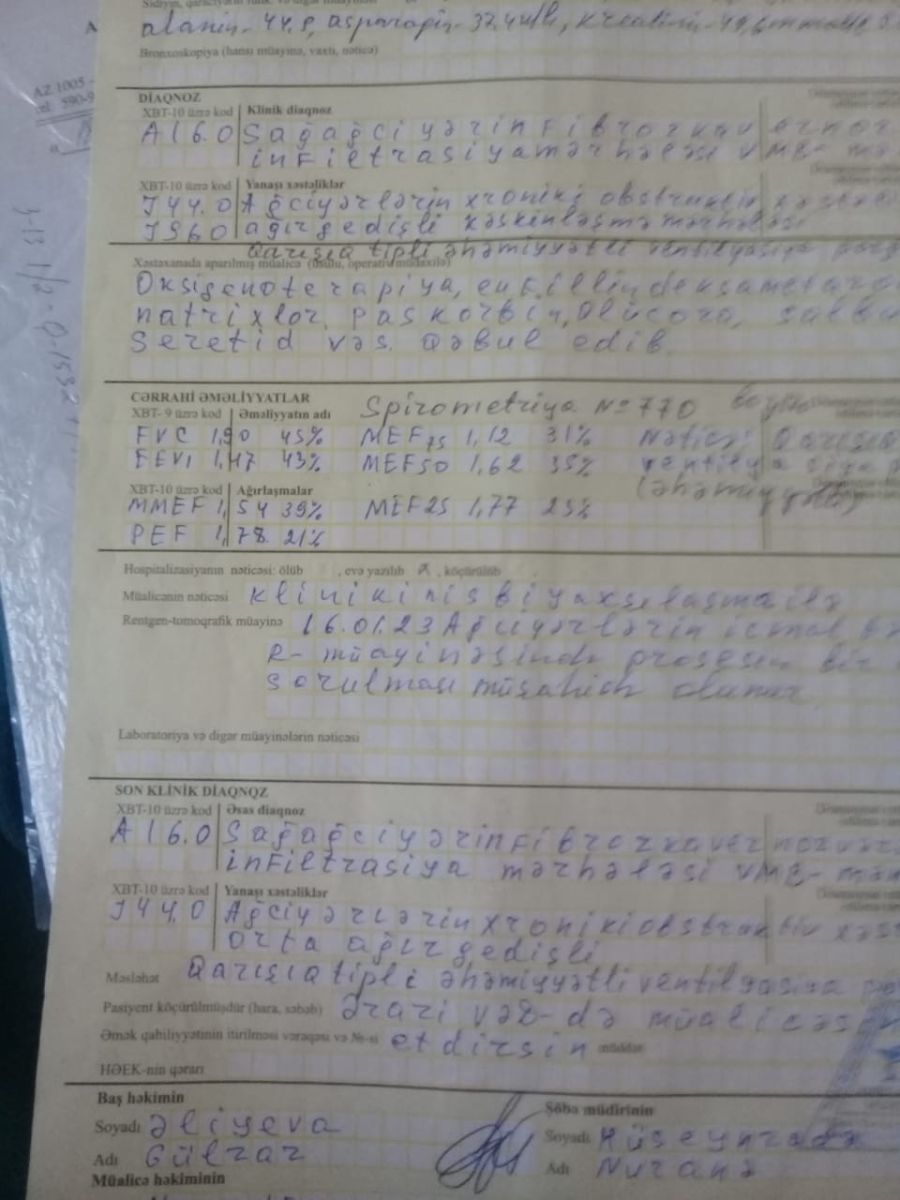 alanin- 44,8, asparagin- 37,4 u/l, kreatinin- 49,6
Bronxoskopiya (hansı müayinə, vaxtı, nəticə)
AZ 1005 -
tel: 590-9
DİAQNOZ
XBT-10 üzrə kod Klinik diaqnoz
A16.0 Sağ ağciyərin fibrozkavernoz
infiltrasiya mərhələsi VMB- mə
XBT-10 üzrə kod Yanaşı xəstəliklər
J44.0 Ağciyərlərin xroniki obstruktiv xəstəli
J96.0 ağır gedişli kəskinləşmə mərhələsi
Qarışıq tipli əhəmiyyətli ventilyasiya poz
Xəstəxanada aparılmış müalicə (üsulu, operativ müdaxilə)
Oksigenoterapiya, eufillin deksametazo
natrixlor, Paskorbin, Qlücoza, salbu
Seretid və s. Qəbul edib.
CƏRRAHİ ƏMƏLİYYATLAR Spirometriya №770
XBT- 9 üzrə kod Əməliyyatın adı
FVC 1,90 45% MEF75 1,12 31% Nəticə: Qarışıq
FEV1 1,47 43% MEF50 1,62 35% ventilyasiya p
XBT-10 üzrə kod Ağırlaşmalar (əhəmiyyətli)
MMEF 1,54 39% MEF25 1,77 25%
PEF 1,78. 21%
Hospitalizasiyanın nəticəsi: ölüb , evə yazılıb , köçürülüb
Müalicənin nəticəsi kliniki nisbi yaxşılaşma ilə
Rentgen-tomoqrafik müayinə 16.01.23 Ağciyərlərin icmal
R- müayinəsində prosesin bir
sorulması müşahidə olunur
Laboratoriya və digər müayinələrin nəticəsi
SON KLİNİK DİAQNOZ
XBT-10 üzrə kod Əsas diaqnoz
A16.0 Sağ ağciyərin fibrozkavernoz vər
infiltrasiya mərhələsi VMB- mən
XBT-10 üzrə kod Yanaşı xəstəliklər
J44.0 Ağciyərlərin xroniki obstruktiv xəs
orta ağır gedişli
Məsləhət Qarışıq tipli əhəmiyyətli ventilyasiya po
Pasiyent köçürülmüşdür (hara, səbəb) Ərazi VƏD-də müalicəsin
Əmək qabiliyyətinin itirilməsi vərəqəsi və №-si etdirsin müddət
HƏEK-nin qərarı
Baş həkimin Şöbə müdirinin
Soyadı Əliyeva Soyadı Hüseynzadə
Adı Gülzar Adı Nuranə
Müalicə həkiminin